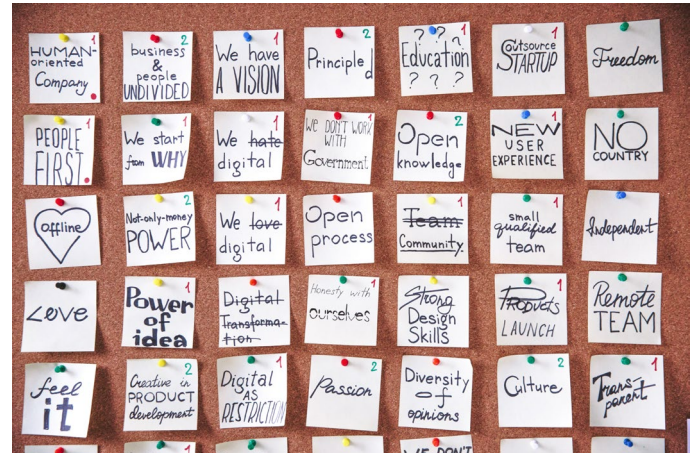 1
HUMAN-
oriented
Company
2
business
&
people
UNDIVIDED
1
We have
A VISION
2
Principled
1
? ? ?
Education
? ? ?
1
Outsource
STARTUP
Freedom
1
PEOPLE
FIRST.
2
We start
from WHY
1
We hate
digital
1
WE DON'T WORK
WITH
Government
2
Open
knowledge
1
NEW
USER
EXPERIENCE
NO
COUNTRY
offline
2
Not-only-money
POWER
1
We love
digital
Open
process
1
Team
Community.
1
small
qualified
team
Independent
Love
1
Power
of
idea
Digital
Transforma-
tion
1
Honesty with
ourselves
Strong
Design
Skills
1
PRODUCTS
LAUNCH
Remote
TEAM
feel
it
2
Creative in
PRODUCT
development
1
Digital
AS
RESTRICTION
2
Passion
Diversity
of
opinions
2
Culture
1
Trans
parent
1
2
WE DON'T